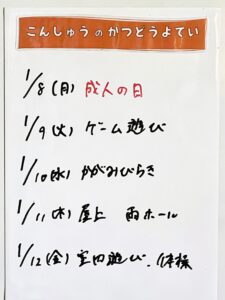 こんしゅうのかつどうよてい
1/8(月) 成人の日
1/9(火) ゲーム遊び
1/10(水) かがみびらき
1/11(木) 屋上 雨ホール
1/12(金) 室内遊び、体操